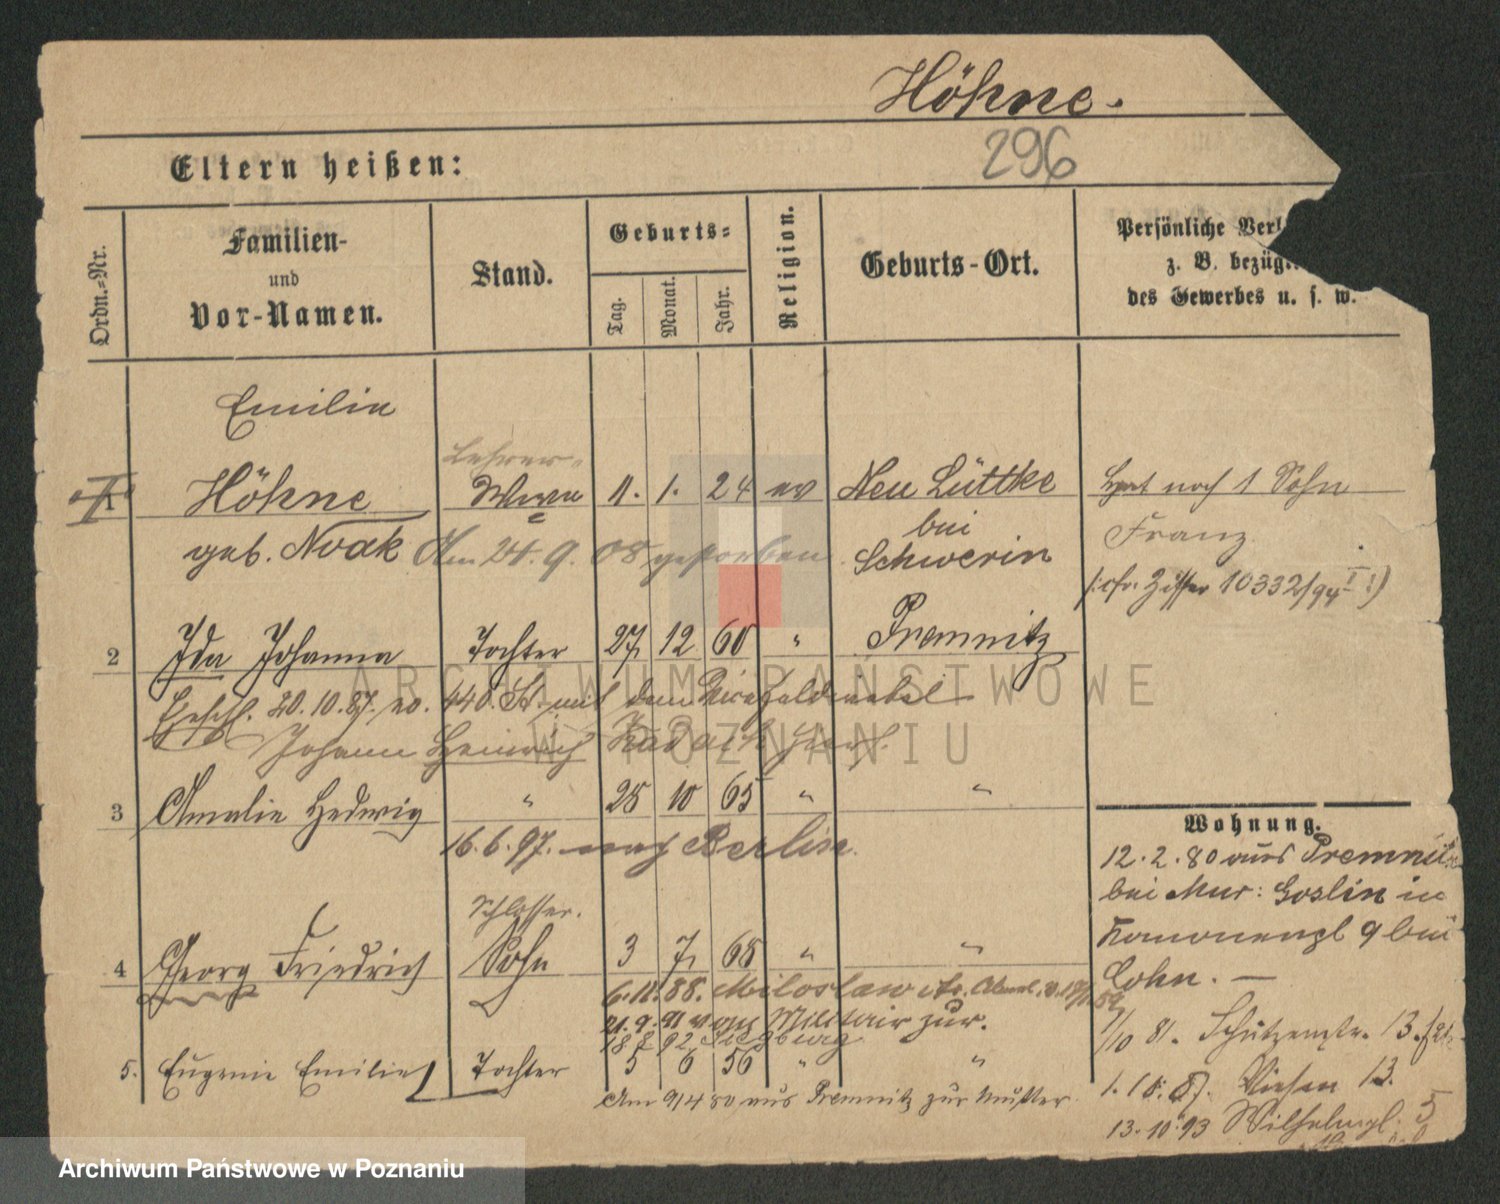 Höhne.
296
Eltern heißen:
Ordn.-Nr.
Familien-
und
Vor-Namen.
Stand.
Geburts-
Tag.
Monat.
Jahr.
Religion.
Geburts-Ort.
Persönliche
z. B.
des Gewerbes u. s. w.
Emilie
Lehrer-
1 Höhne Wwe 11. 1. 24 ev Neu Lüttke
geb. Noak Am 24. 9. 08 gestorben
bei
Schwerin
Hat noch 1 Sohn
Franz
(:cfr. Ziffer 10332/94 I:)
2 Ida Johanna Tochter 27 12 60 " Premnitz
Eheschl. 20.10.87. no. 440. St. mit dem Vicefeldwebel
Johann Heinrich
3 Amalie Hedwig " 28 10 65 " "
16.6.97. nach Berlin.
Schlosser.
4 Georg Friedrich Sohn 3 7 68 " "
6.11.88. Miloslaw
21.9.91 vom Militair zur.
18 2 92 Siegburg
5. Eugenie Emilie Tochter 5 6 56 " "
Am 9/4 80 aus Premnitz zur Mutter
Wohnung.
12.2.80 aus Premnitz
bei Mur: Goslin in
Kanonenpl 9 bei
Cohn. —
1/10 81. Schützenstr. 13.
1.10.87. Wiesen 13.
13.10.93 Wilhelmspl. 5
ARCHIWUM PAŃSTWOWE
W POZNANIU
Archiwum Państwowe w Poznaniu